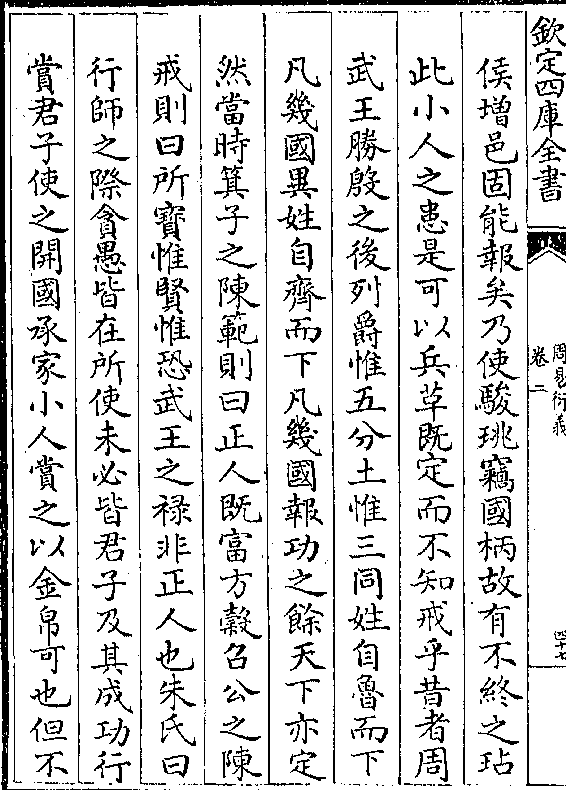 欽定四庫全書
周易衍義
卷二
四十七
侯增邑固能報矣乃使駿珧竊國柄故有不終之玷
此小人之患是可以兵革既定而不知戒乎昔者周
武王勝殷之後列爵惟五分土惟三同姓自魯而下
凡幾國異姓自齊而下凡幾國報功之餘天下亦定
然當時箕子之陳範則曰正人既富方穀召公之陳
戒則曰所寳惟賢惟恐武王之禄非正人也朱氏曰
行師之際貪愚皆在所使未必皆君子及其成功行
賞君子使之開國承家小人賞之以金帛可也但不